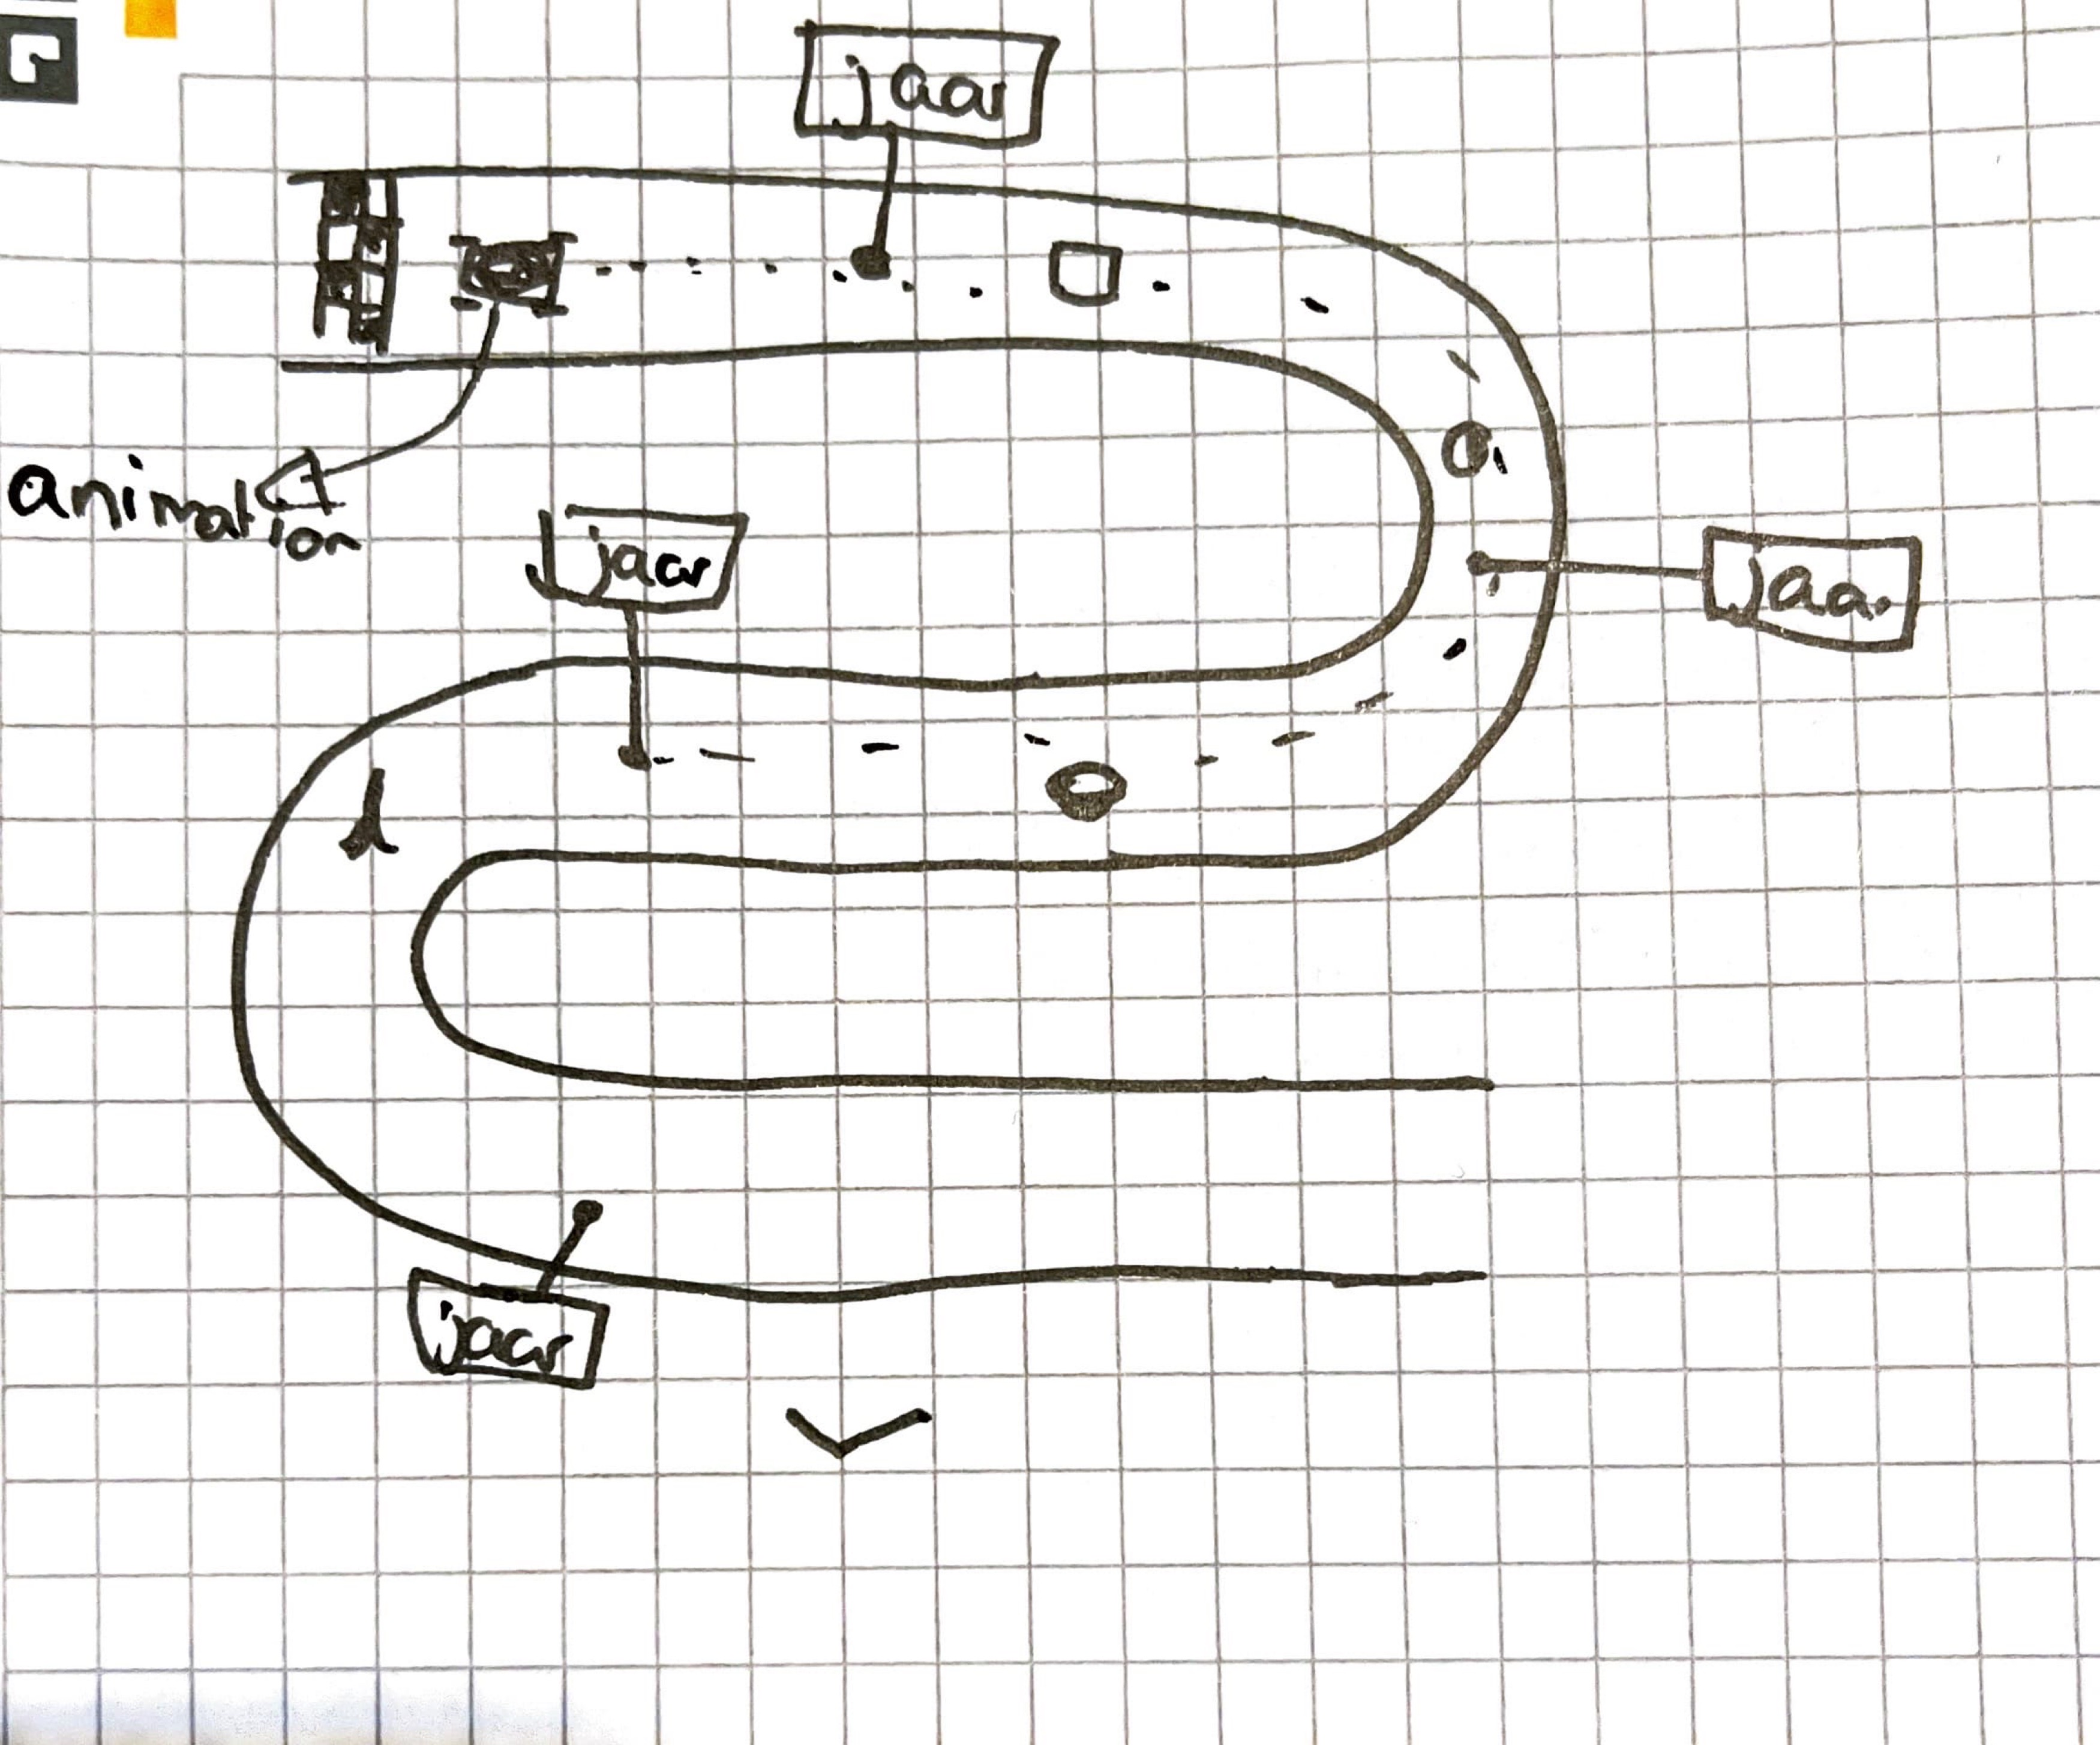 jaar
animation
jaar
jaar
jaar